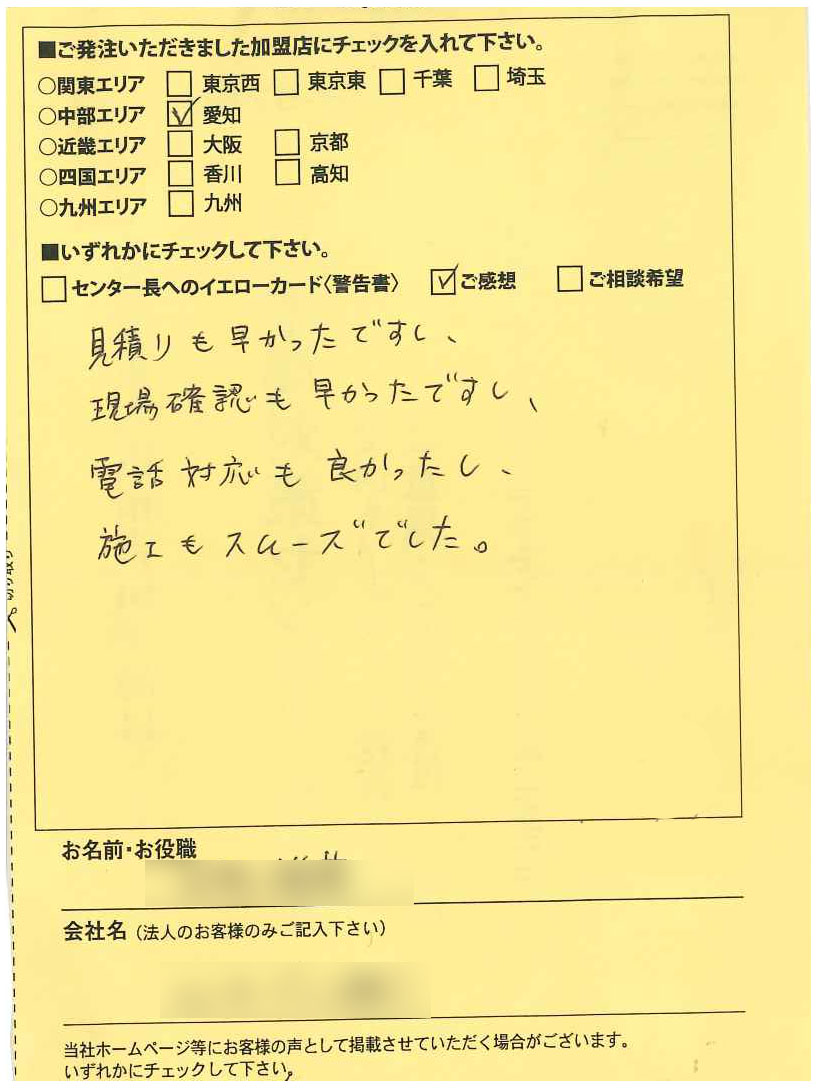 ■ご発注いただきました加盟店にチェックを入れて下さい。
○関東エリア □ 東京西 □ 東京東 □ 千葉 □ 埼玉
○中部エリア ☑ 愛知
○近畿エリア □ 大阪 □ 京都
○四国エリア □ 香川 □ 高知
○九州エリア □ 九州
■いずれかにチェックして下さい。
□ センター長へのイエローカード〈警告書〉 ☑ ご感想 □ ご相談希望
見積りも早かったですし、
現場確認も早かったですし、
電話対応も良かったし、
施工もスムーズでした。
お名前・お役職
会社名（法人のお客様のみご記入下さい）
当社ホームページ等にお客様の声として掲載させていただく場合がございます。
いずれかにチェックして下さい。